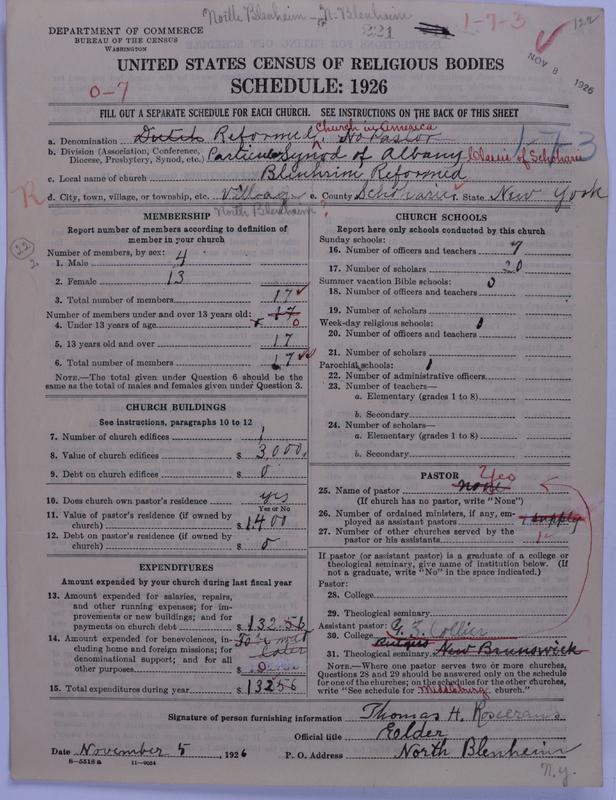 North Blenheim - N. Blenheim
221
1-7-3
122
DEPARTMENT OF COMMERCE
BUREAU OF THE CENSUS
WASHINGTON
NOV 8 1926
UNITED STATES CENSUS OF RELIGIOUS BODIES
SCHEDULE: 1926
0-7
FILL OUT A SEPARATE SCHEDULE FOR EACH CHURCH. SEE INSTRUCTIONS ON THE BACK OF THIS SHEET
Church in America
a. Denomination Dutch Reformed No Pastor
1-7-3
b. Division (Association, Conference, Diocese, Presbytery, Synod, etc.) Particular Synod of Albany Classis of Schoharie
c. Local name of church Blenheim Reformed
R
d. City, town, village, or township, etc. Village e. County Schoharie f. State New York
North Blenheim
22
MEMBERSHIP
Report number of members according to definition of member in your church
Number of members, by sex:
1. Male 4
2. Female 13
3. Total number of members 17
Number members under and over 13 years old: 17
4. Under 13 years of age 0
5. 13 years old and over 17
6. Total number of members 17
NOTE.—The total given under Question 6 should be the same as the total of males and females given under Question 3.
CHURCH BUILDINGS
See instructions, paragraphs 10 to 12
7. Number of church edifices 1
8. Value of church edifices $ 3,000
9. Debt on church edifices $ 0
10. Does church own pastor's residence yes
Yes or No
11. Value of pastor's residence (if owned by church) $ 1400
12. Debt on pastor's residence (if owned by church) $ 0
EXPENDITURES
Amount expended by your church during last fiscal year
13. Amount expended for salaries, repairs, and other running expenses; for improvements or new buildings; and for payments on church debt $ 132.56
14. Amount expended for benevolences, including home and foreign missions; for denominational support; and for all other purposes $ 0
later
15. Total expenditures during year $ 132 56
CHURCH SCHOOLS
Report here only schools conducted by this church
Sunday schools:
16. Number of officers and teachers 7
17. Number of scholars 20
Summer vacation Bible schools: 0
18. Number of officers and teachers
19. Number of scholars
Week-day religious schools:
20. Number of officers and teachers
21. Number of scholars
Parochial schools:
22. Number of administrative officers
23. Number of teachers—
a. Elementary (grades 1 to 8)
b. Secondary
24. Number of scholars—
a. Elementary (grades 1 to 8)
b. Secondary
PASTOR Yes
25. Name of pastor none
(If church has no pastor, write "None")
26. Number of ordained ministers, if any, employed as assistant pastors 1 supply
27. Number of other churches served by the pastor or his assistants 1
If pastor (or assistant pastor) is a graduate of a college or theological seminary, give name of institution below. (If not a graduate, write "No" in the space indicated.)
Pastor:
28. College
29. Theological seminary
Assistant pastor: G. Z. Collier
30. College Rutgers
31. Theological seminary New Brunswick
NOTE.—Where one pastor serves two or more churches, Questions 28 and 29 should be answered only on the schedule for one of the churches; on the schedules for the other churches, write "See schedule for Middleburg church."
Signature of person furnishing information Thomas H. Rosecrans
Official title Elder
Date November 5, 1926 P. O. Address North Blenheim
N.Y.
8-5518 a 11-9024